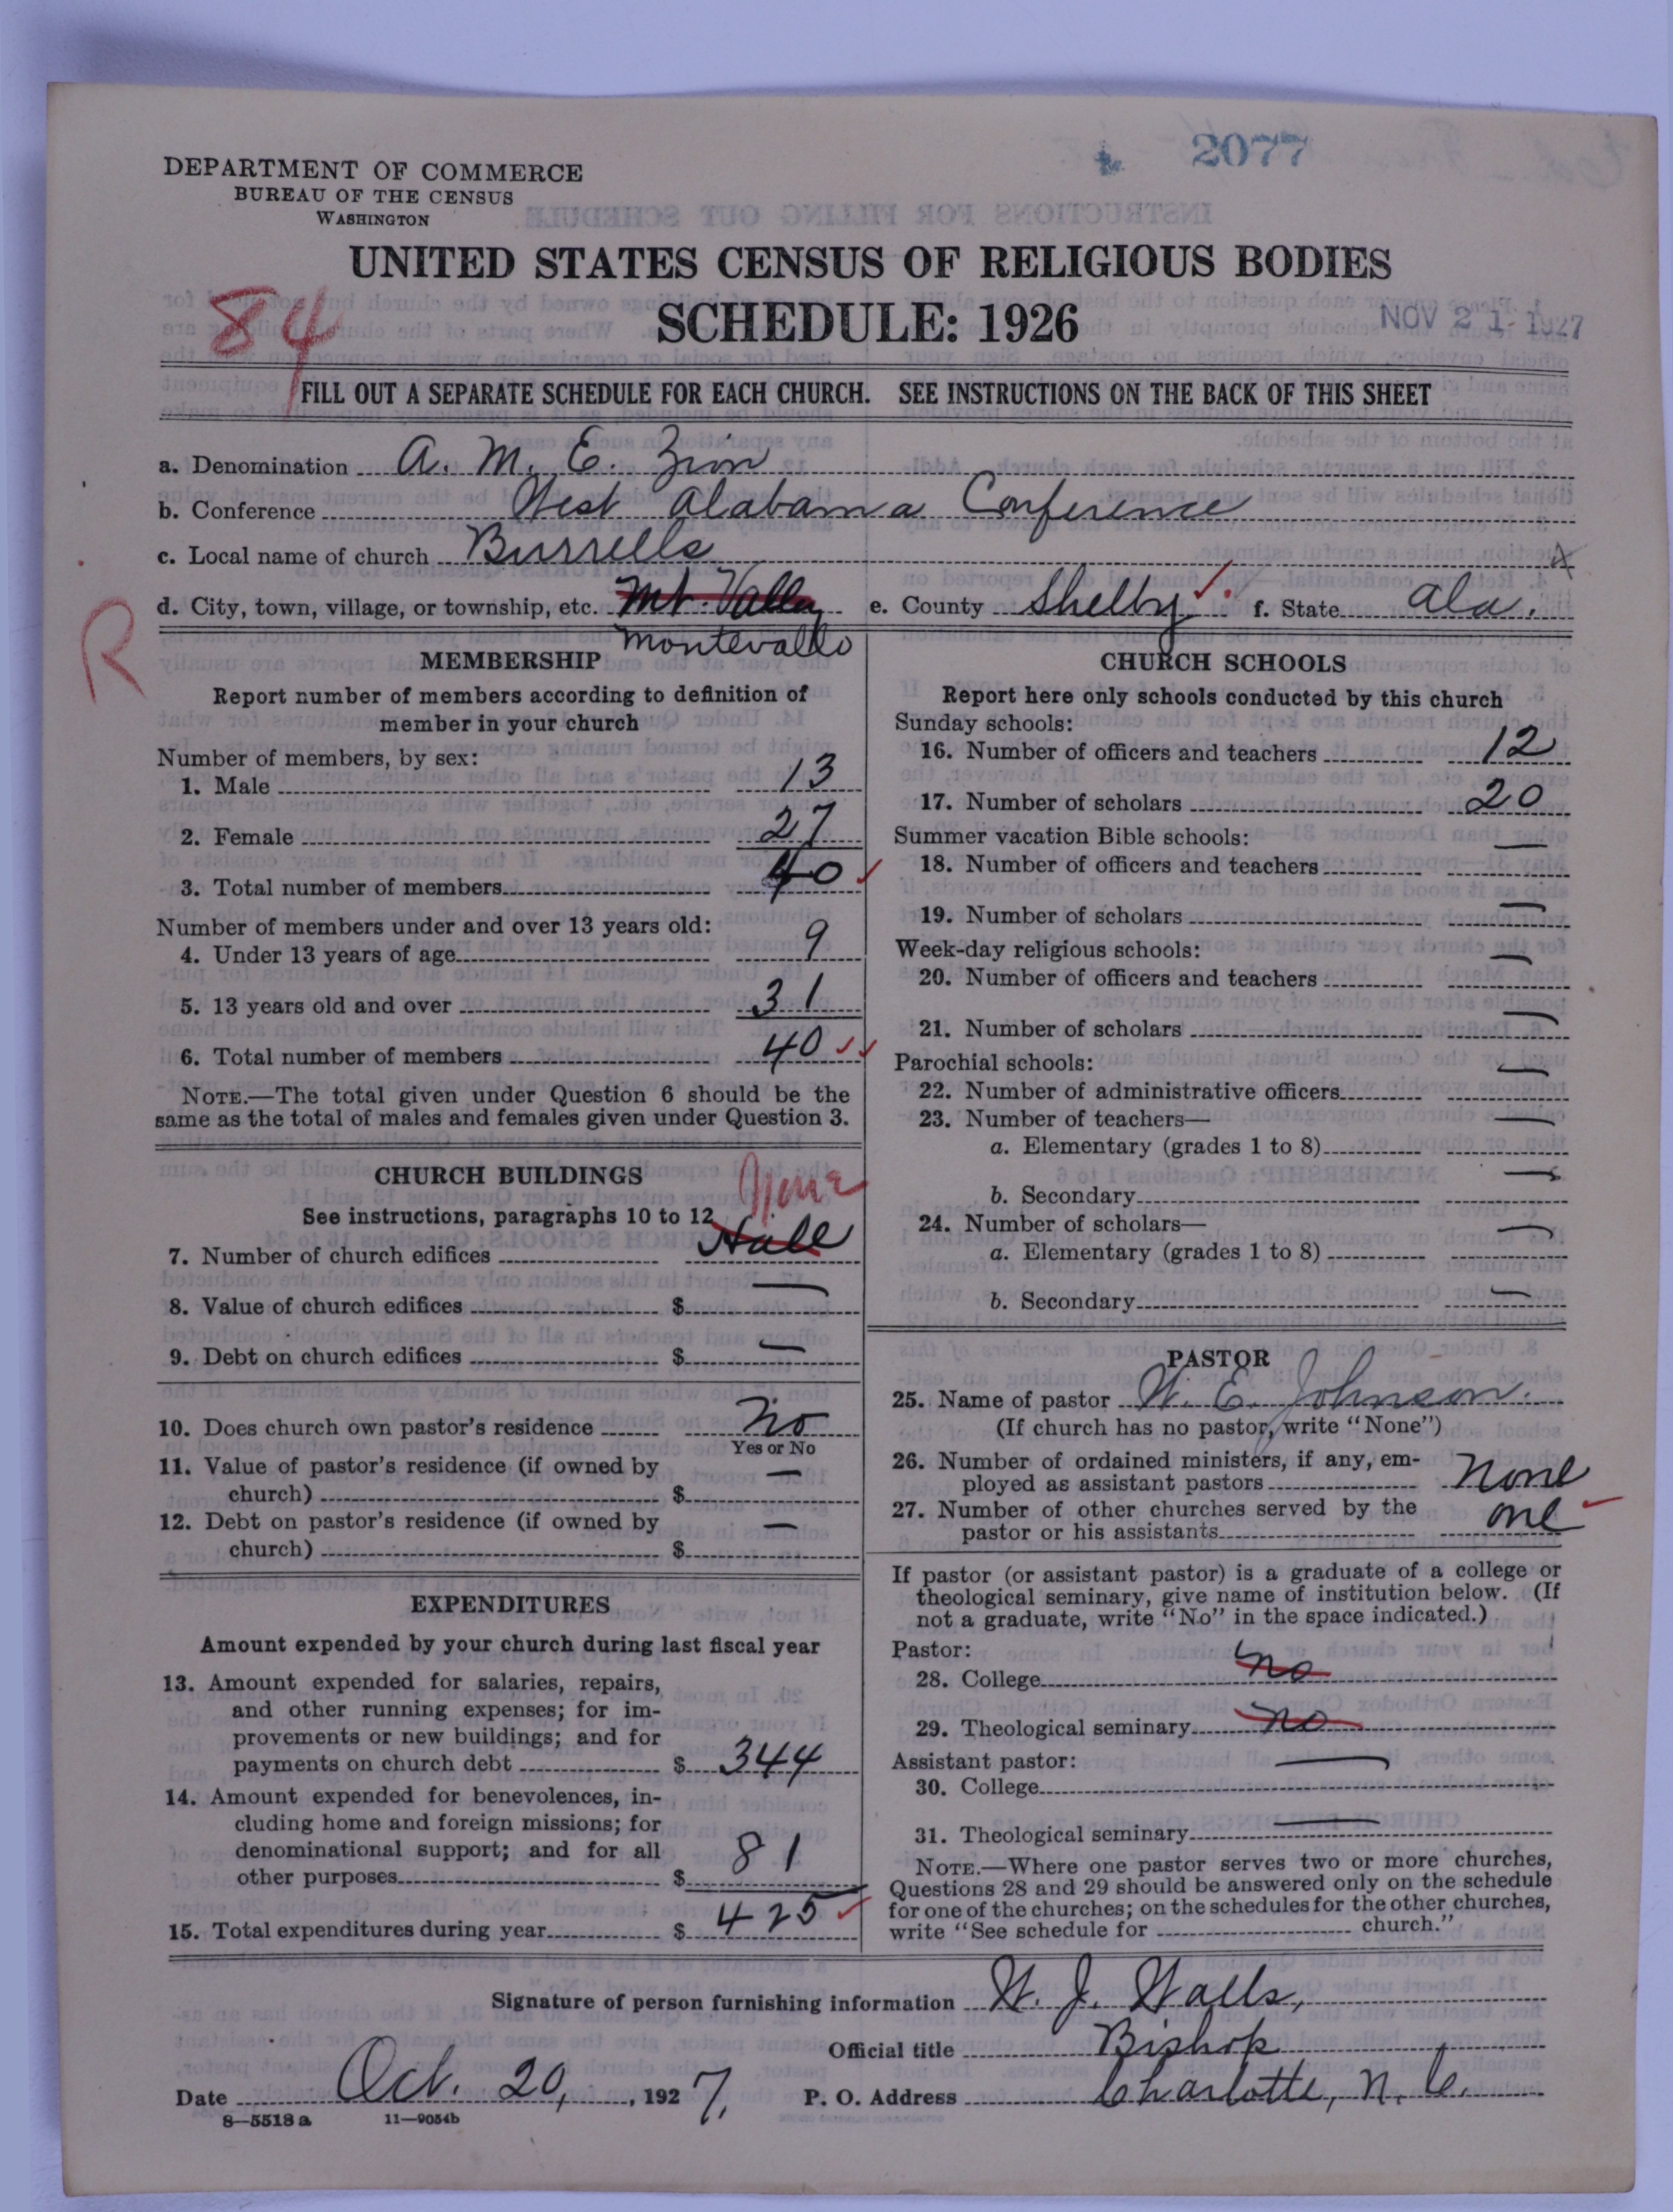 2077
DEPARTMENT OF COMMERCE
BUREAU OF THE CENSUS
WASHINGTON
UNITED STATES CENSUS OF RELIGIOUS BODIES
SCHEDULE: 1926
NOV 21 1927
84
FILL OUT A SEPARATE SCHEDULE FOR EACH CHURCH. SEE INSTRUCTIONS ON THE BACK OF THIS SHEET
a. Denomination A. M. E. Zion
b. Conference West Alabama Conference
c. Local name of church Burrells
d. City, town, village, or township, etc. Mt. Valley e. County Shelby f. State Ala.
Montevallo
R
MEMBERSHIP
Report number of members according to definition of
member in your church
Number of members, by sex:
1. Male 13
2. Female 27
3. Total number of members 40
Number of members under and over 13 years old:
4. Under 13 years of age 9
5. 13 years old and over 31
6. Total number of members 40
NOTE.—The total given under Question 6 should be the
same as the total of males and females given under Question 3.
CHURCH BUILDINGS
None
See instructions, paragraphs 10 to 12
7. Number of church edifices Hall
8. Value of church edifices $ —
9. Debt on church edifices $ —
10. Does church own pastor's residence No
Yes or No
11. Value of pastor's residence (if owned by
church) $ —
12. Debt on pastor's residence (if owned by
church) $ —
EXPENDITURES
Amount expended by your church during last fiscal year
13. Amount expended for salaries, repairs,
and other running expenses; for im-
provements or new buildings; and for
payments on church debt $ 344
14. Amount expended for benevolences, in-
cluding home and foreign missions; for
denominational support; and for all
other purposes $ 81
15. Total expenditures during year $ 425
CHURCH SCHOOLS
Report here only schools conducted by this church
Sunday schools:
16. Number of officers and teachers 12
17. Number of scholars 20
Summer vacation Bible schools:
18. Number of officers and teachers —
19. Number of scholars —
Week-day religious schools:
20. Number of officers and teachers —
21. Number of scholars —
Parochial schools:
22. Number of administrative officers —
23. Number of teachers—
a. Elementary (grades 1 to 8) —
b. Secondary —
24. Number of scholars—
a. Elementary (grades 1 to 8) —
b. Secondary —
PASTOR
25. Name of pastor W. E. Johnson.
(If church has no pastor, write "None")
26. Number of ordained ministers, if any, em-
ployed as assistant pastors none
27. Number of other churches served by the
pastor or his assistants one
If pastor (or assistant pastor) is a graduate of a college or
theological seminary, give name of institution below. (If
not a graduate, write "No" in the space indicated.)
Pastor:
28. College no
29. Theological seminary no
Assistant pastor:
30. College —
31. Theological seminary —
NOTE.—Where one pastor serves two or more churches,
Questions 28 and 29 should be answered only on the schedule
for one of the churches; on the schedules for the other churches,
write "See schedule for church."
Signature of person furnishing information W. J. Walls,
Official title Bishop
Date Oct. 20, 1927, P. O. Address Charlotte, N. C.
8—5518 a 11—9054b